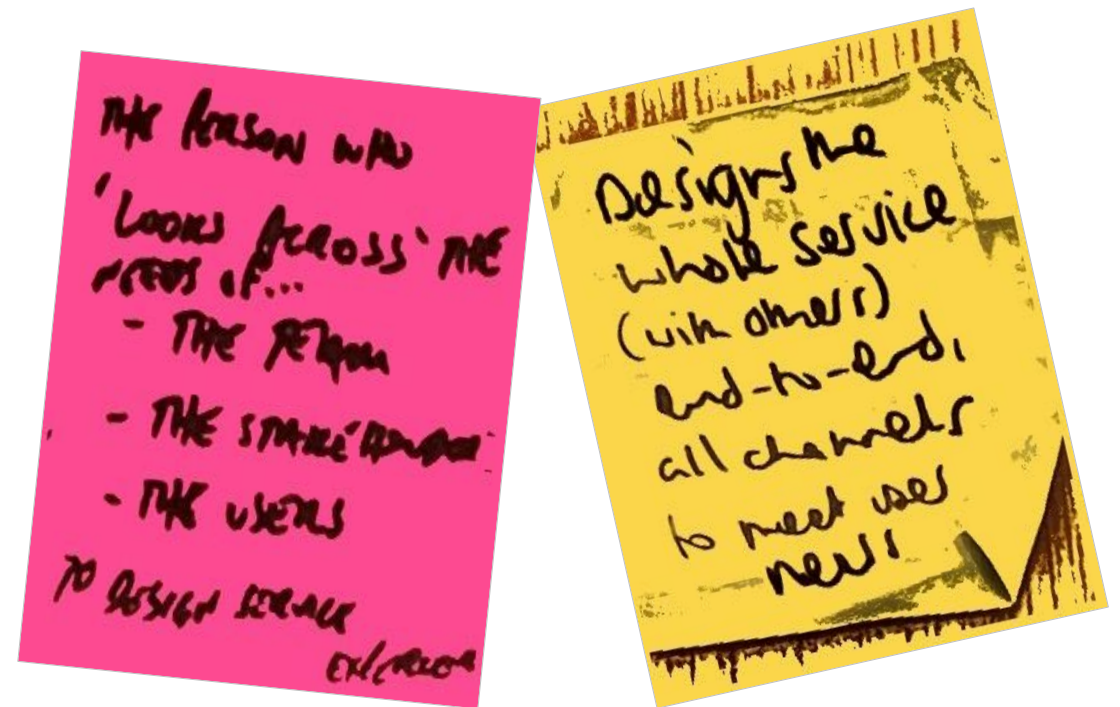 THE PERSON WHO
'LOOKS ACROSS' THE
NEEDS OF...
- THE
- THE STAKEHOLDER
- THE USERS
TO DESIGN SERVICE
Designs the
whole service
(with others)
end-to-end,
all channels
to meet user
needs